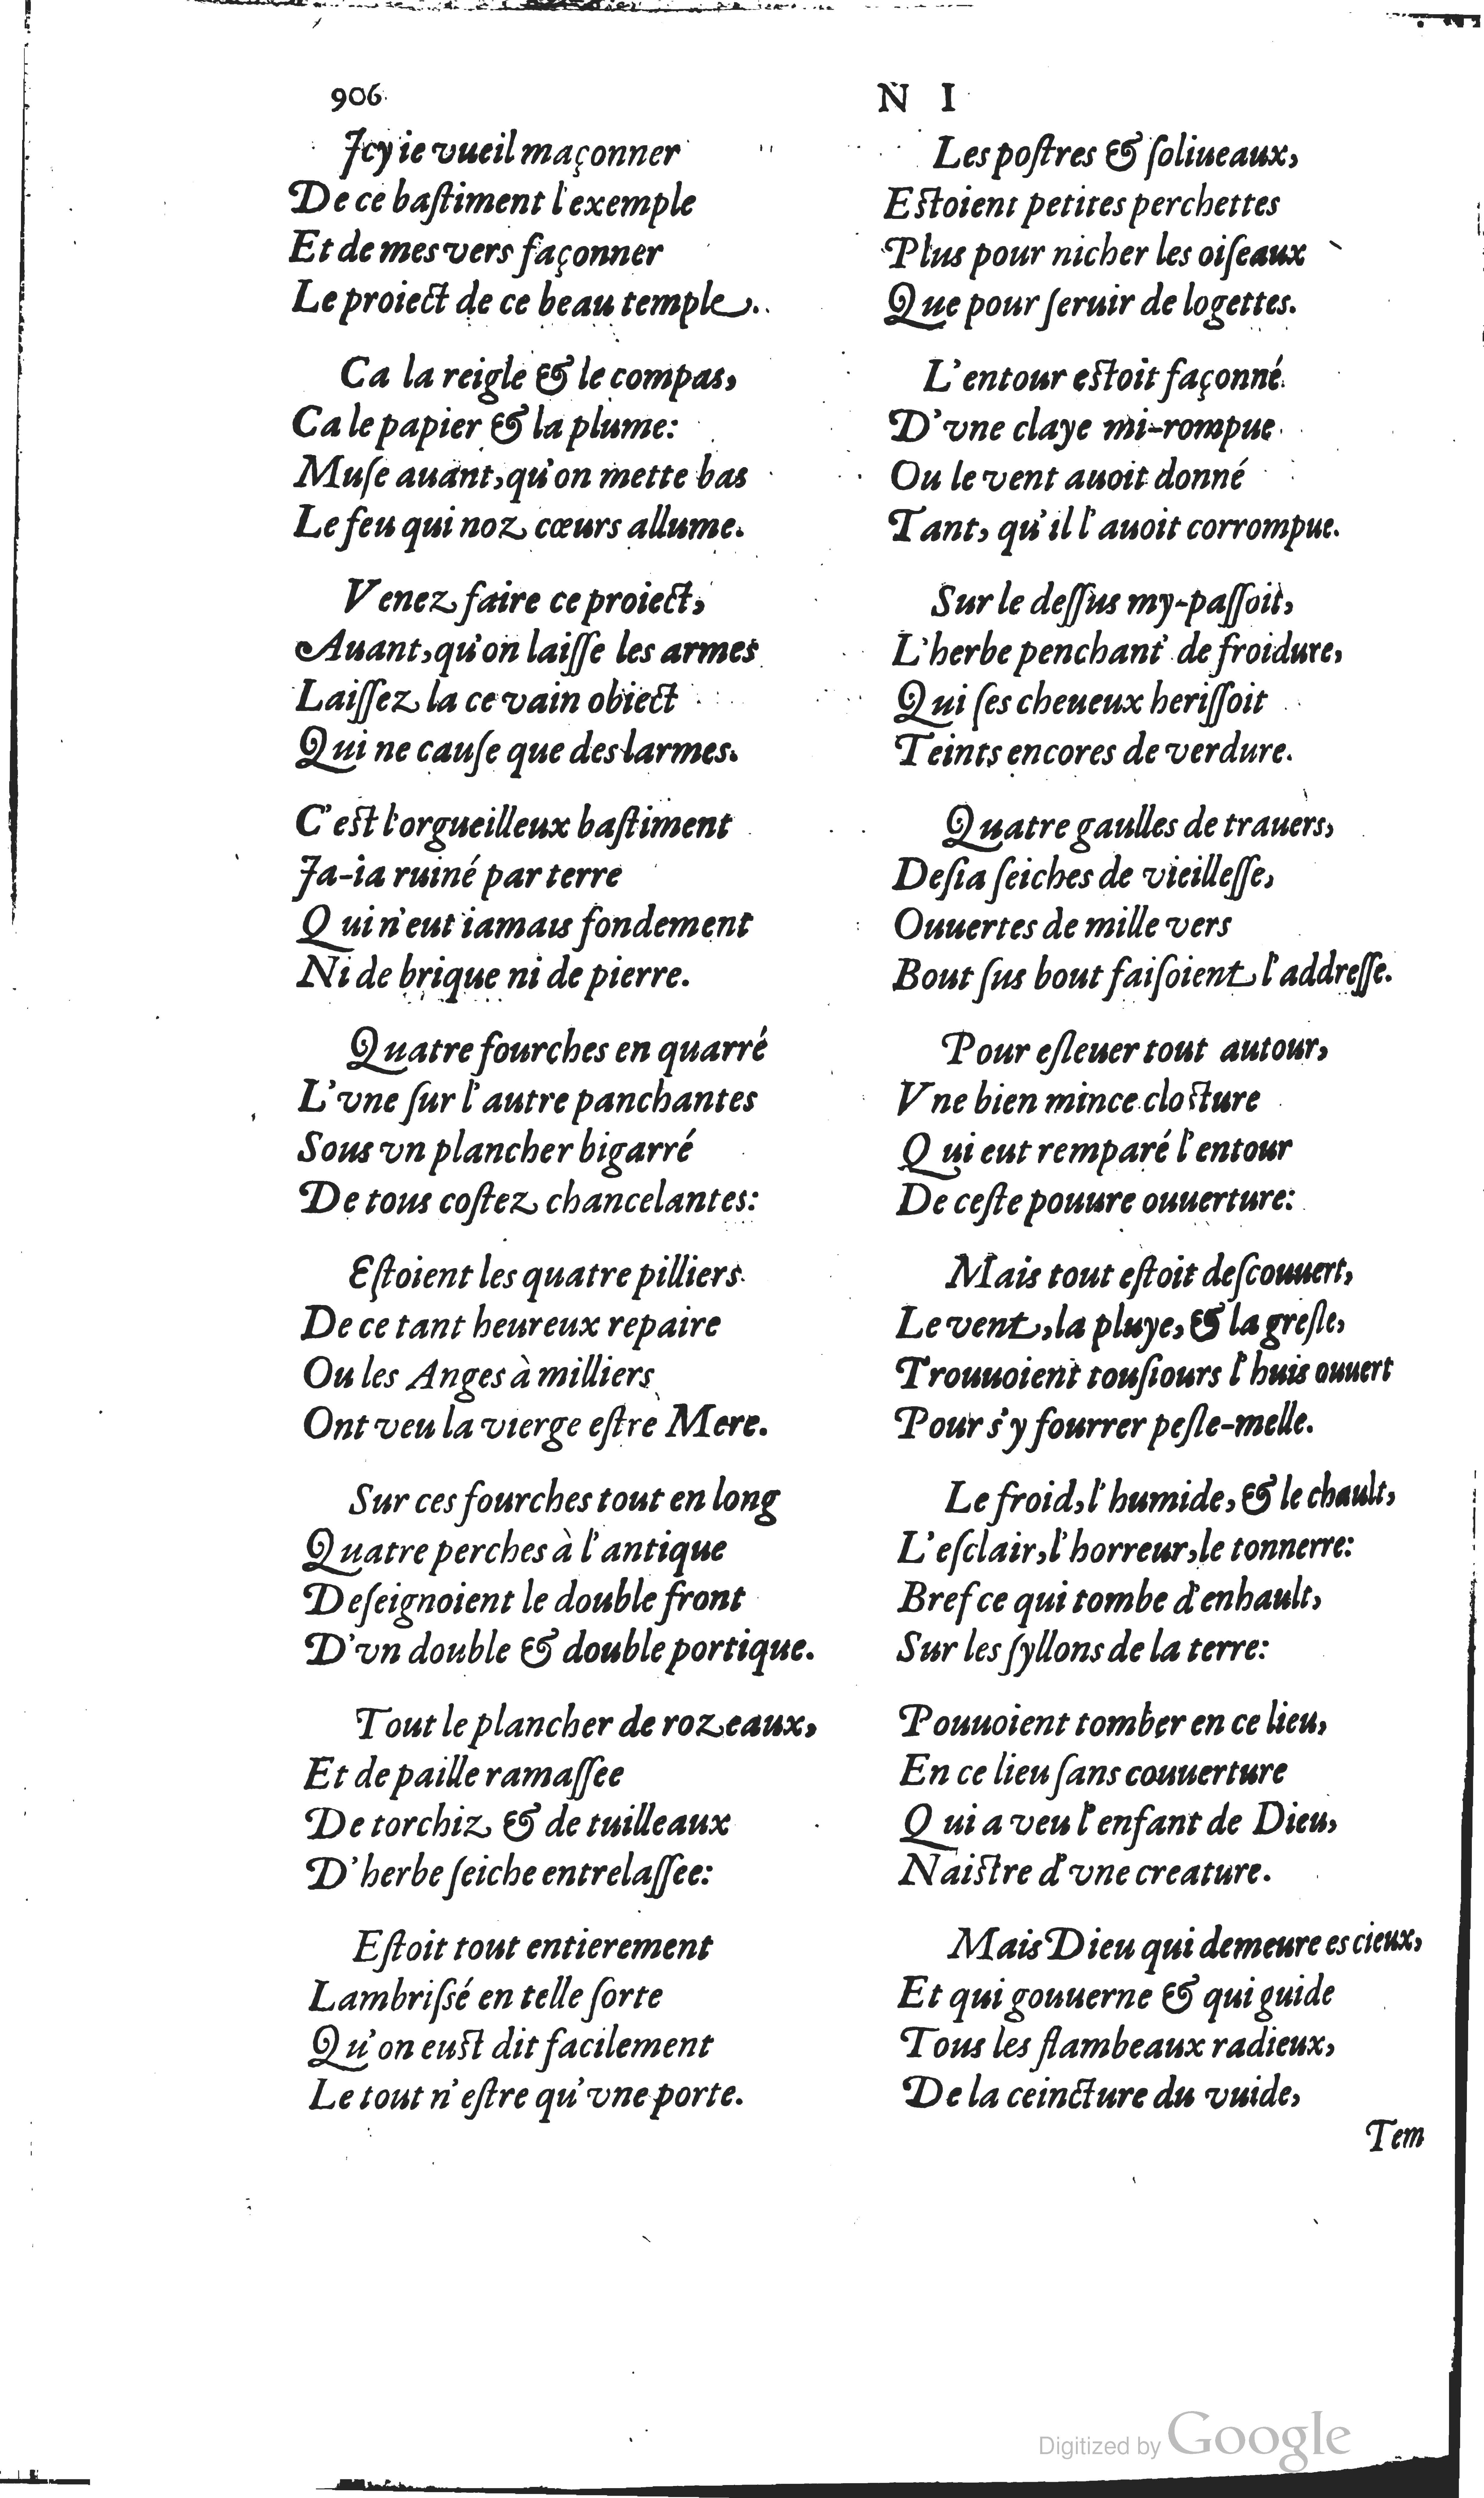 906
N I
Icy ie vueil maçonner
De ce baſtiment l'exemple
Et de mes vers façonner
Le proiect de ce beau temple.
Ca la reigle & le compas,
Ca le papier & la plume:
Muſe auant, qu'on mette bas
Le feu qui noz cœurs allume.
Venez faire ce proiect,
Auant, qu'on laiſſe les armes
Laiſſez la ce vain obiect
Qui ne cauſe que des larmes.
C'eſt l'orgueilleux baſtiment
Ja-ia ruiné par terre
Qui n'eut iamais fondement
Ni de brique ni de pierre.
Quatre fourches en quarré
L'vne ſur l'autre panchantes
Sous vn plancher bigarré
De tous coſtez chancelantes:
Eſtoient les quatre pilliers
De ce tant heureux repaire
Ou les Anges à milliers
Ont veu la vierge eſtre Mere.
Sur ces fourches tout en long
Quatre perches à l'antique
Deſeignoient le double front
D'vn double & double portique.
Tout le plancher de rozeaux,
Et de paille ramaſſee
De torchiz & de tuilleaux
D'herbe ſeiche entrelaſſee:
Eſtoit tout entierement
Lambriſſé en telle ſorte
Qu'on euſt dit facilement
Le tout n'eſtre qu'vne porte.
Les poſtres & ſoliueaux,
Eſtoient petites perchettes
Plus pour nicher les oiſeaux
Que pour ſeruir de logettes.
L'entour eſtoit façonné
D'vne claye mi-rompue
Ou le vent auoit donné
Tant, qu'il l'auoit corrompue.
Sur le deſſus my-paſſoit,
L'herbe penchant de froidure,
Qui ſes cheueux heriſſoit
Teints encores de verdure.
Quatre gaulles de trauers,
Deſia ſeiches de vieilleſſe,
Ouuertes de mille vers
Bout ſus bout faiſoient l'addreſſe.
Pour eſleuer tout autour,
Vne bien mince cloſture
Qui eut remparé l'entour
De ceſte pouure ouuerture:
Mais tout eſtoit deſcouuert,
Le vent, la pluye, & la greſle,
Trouuoient touſiours l'huis ouuert
Pour s'y fourrer peſle-melle.
Le froid, l'humide, & le chault,
L'eſclair, l'horreur, le tonnerre:
Bref ce qui tombe d'enhault,
Sur les ſyllons de la terre:
Pouuoient tomber en ce lieu,
En ce lieu ſans couuerture
Qui a veu l'enfant de Dieu,
Naiſtre d'vne creature.
Mais Dieu qui demeure es cieux,
Et qui gouuerne & qui guide
Tous les flambeaux radieux,
De la ceincture du vuide,
Tem
Digitized by Google